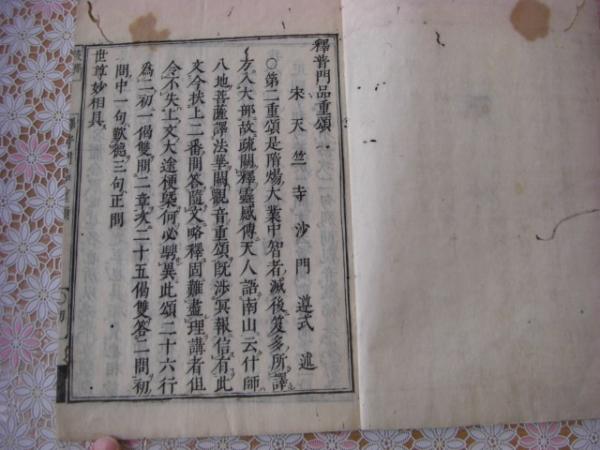 釋普門品重頌
宋天竺寺沙門遵式述
○第二重頌是隋煬大業中智者滅後笈多所譯
方入大部故疏闕釋靈感傳天人語南山云什師
八地菩薩譯法華闕觀音重頌既涉冥報信有此
文今扶上二番問答隨文略釋固難盡理講者但
令不失上文大途便槩何必騁異此頌二十六行
為二初一偈雙問二章次二十五偈雙答二問初
問中一句歎德三句正問
世尊妙相具